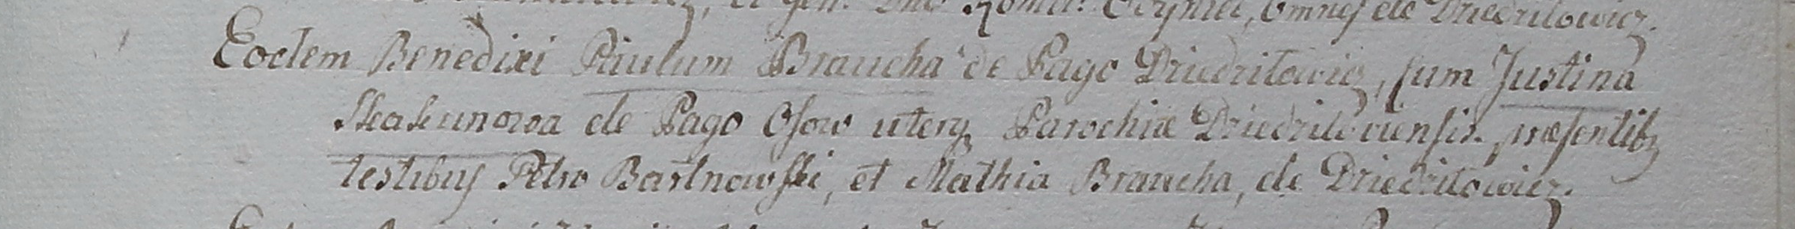 et Gen: Dno omnes de Dziedzilowicz.
Eodem Benedixi Paulum Braucha de Pago Dziedzilowicz, sum Justina
Skakunowa de Pago Osow uterq Parochiæ Dziedziloviensis. præsentibz
testibus Petro Bastnowski, et Mathia Braucha, de Dziedzilowicz.